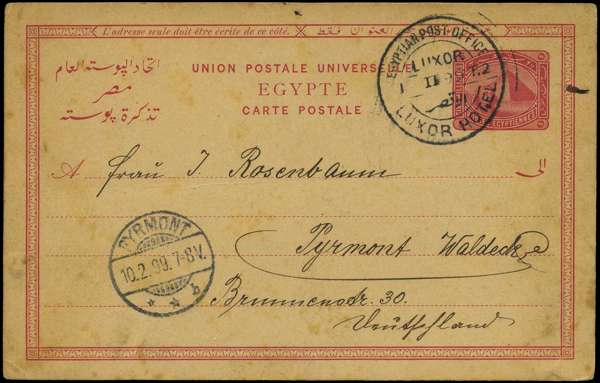 L'adresse seule doit être écrite de ce côté. العنوان فقط
UNION POSTALE UNIVERSELLE
EGYPTE
CARTE POSTALE
اتحاد البوستة العام
مصر
تذكرة بوسته
EGYPTIAN POST-OFFICE
LUXOR
II
LUXOR HOTEL
A Frau J. Rosenbaum الى
Pyrmont Waldeck
Brunnenstr. 30.
Deutschland
PYRMONT
10.2.99.7-8V.
* * b